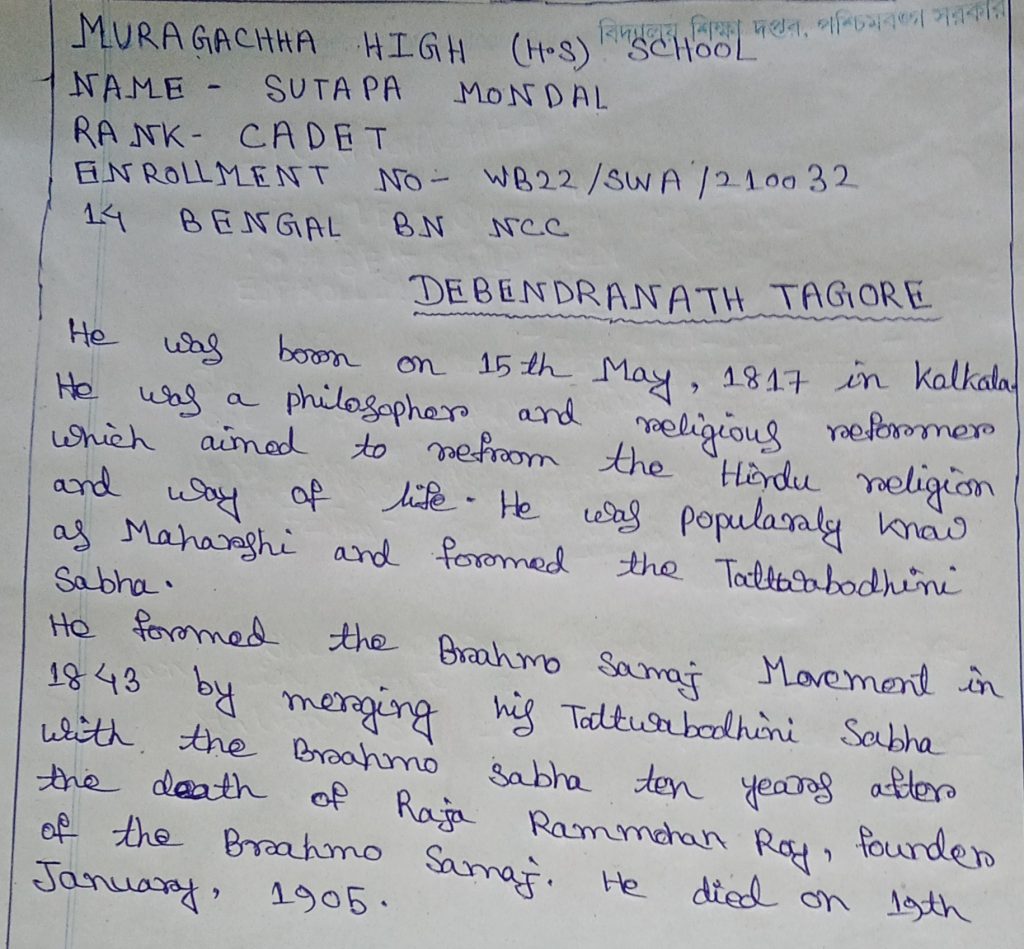 বিদ্যালয় শিক্ষা দপ্তর, পশ্চিমবঙ্গ সরকার
MURAGACHHA HIGH (H.S) SCHOOL
NAME - SUTAPA MONDAL
RANK - CADET
ENROLLMENT NO - WB22/SWA/210032
14 BENGAL BN NCC
DEBENDRANATH TAGORE
He was born on 15th May, 1817 in Kalkata
He was a philosopher and religious reformer
which aimed to refrom the Hindu religion
and way of life. He was popularaly know
as Maharshi and formed the Tattwabodhini
Sabha.
He formed the Brahmo Samaj Movement in
1843 by merging his Tattwabodhini Sabha
with the Brahmo Sabha ten years after
the death of Raja Rammohan Roy, founder
of the Brahmo Samaj. He died on 19th
January, 1905.